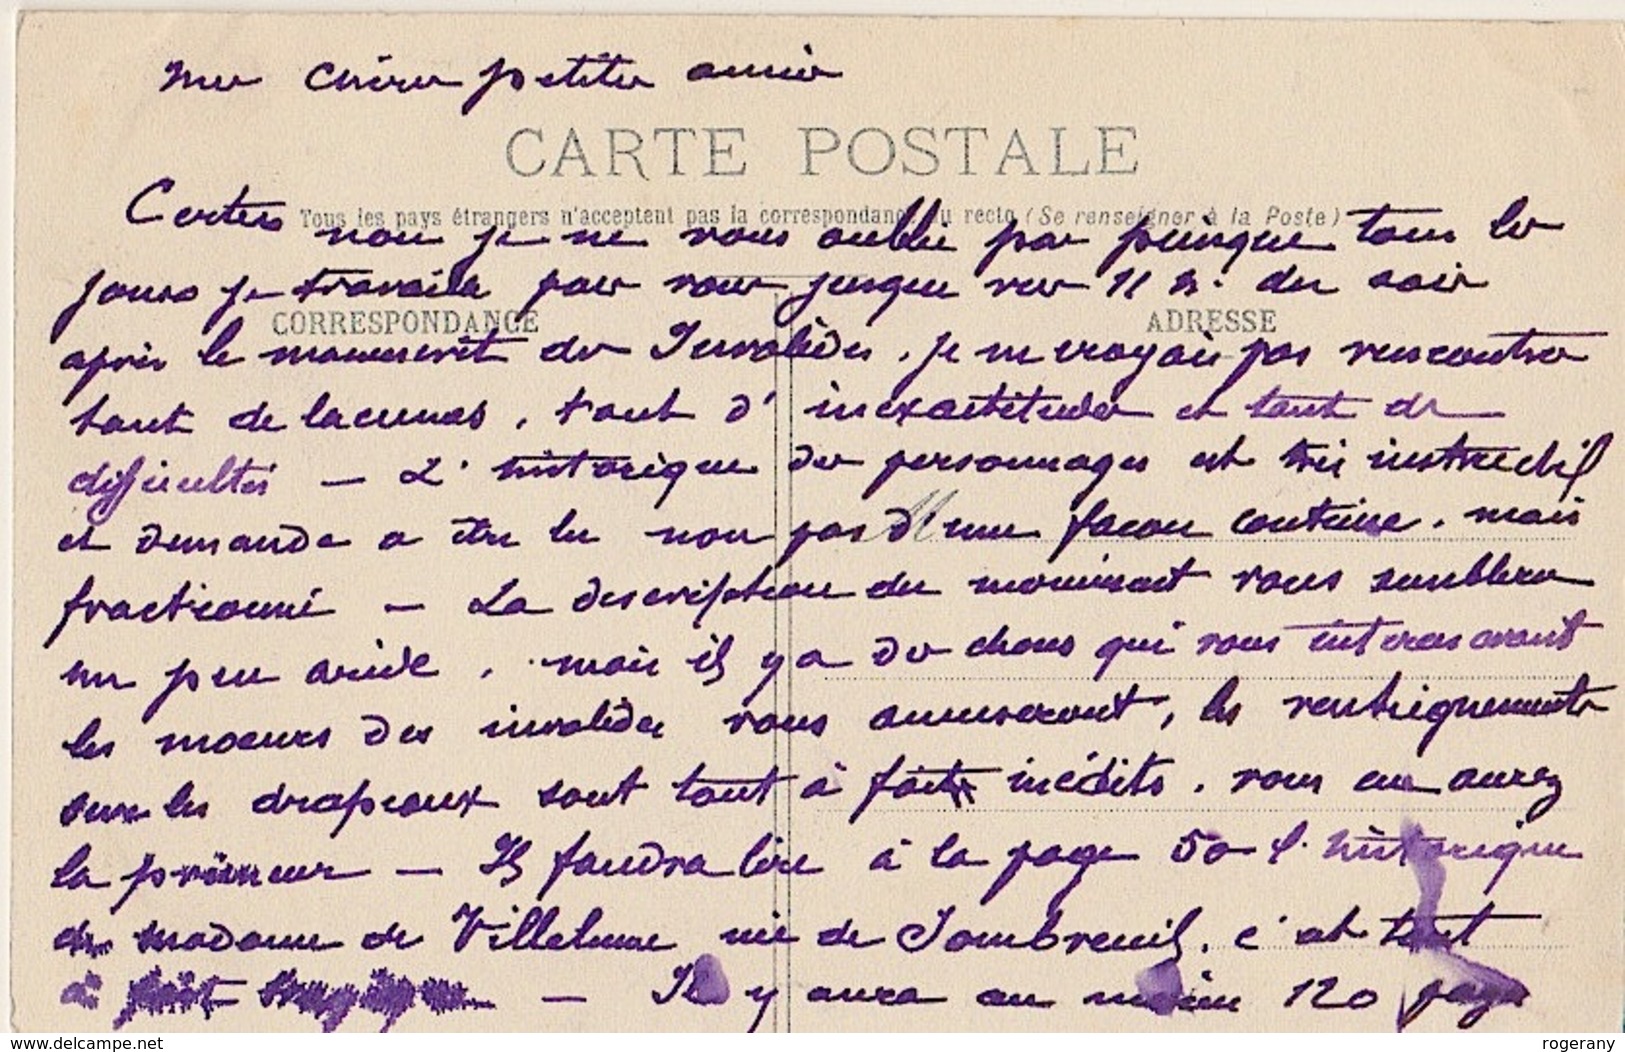 Ma chère petite amie
CARTE POSTALE
Tous les pays étrangers n'acceptent pas la correspondance au recto (Se renseigner à la Poste)
Certes non je ne vous oublie pas puisque tous les
jours je travaille pour vous jusque vers 11 h. du soir
CORRESPONDANCE
ADRESSE
après le manuscrit des Invalides. je ne croyais pas rencontrer
tant de lacunes, tant d'inexactitudes et tant de
difficultés — L'historique des personnages est très instructif
et demande a être lu non pas d'une façon continue. mais
fractionné — La description du monument vous semblera
un peu aride, mais il y a des choses qui vous interesseront
les moeurs des invalides vous amuseront, les renseignements
sur les drapeaux sont tout à fait inédits. vous en aurez
la primeur — Il faudra lire à la page 50 l'historique
de madame de Villelume née de Sombreuil. c'est tout
à fait — Il y aura au moins 120 pages
delcampe.net
rogerany